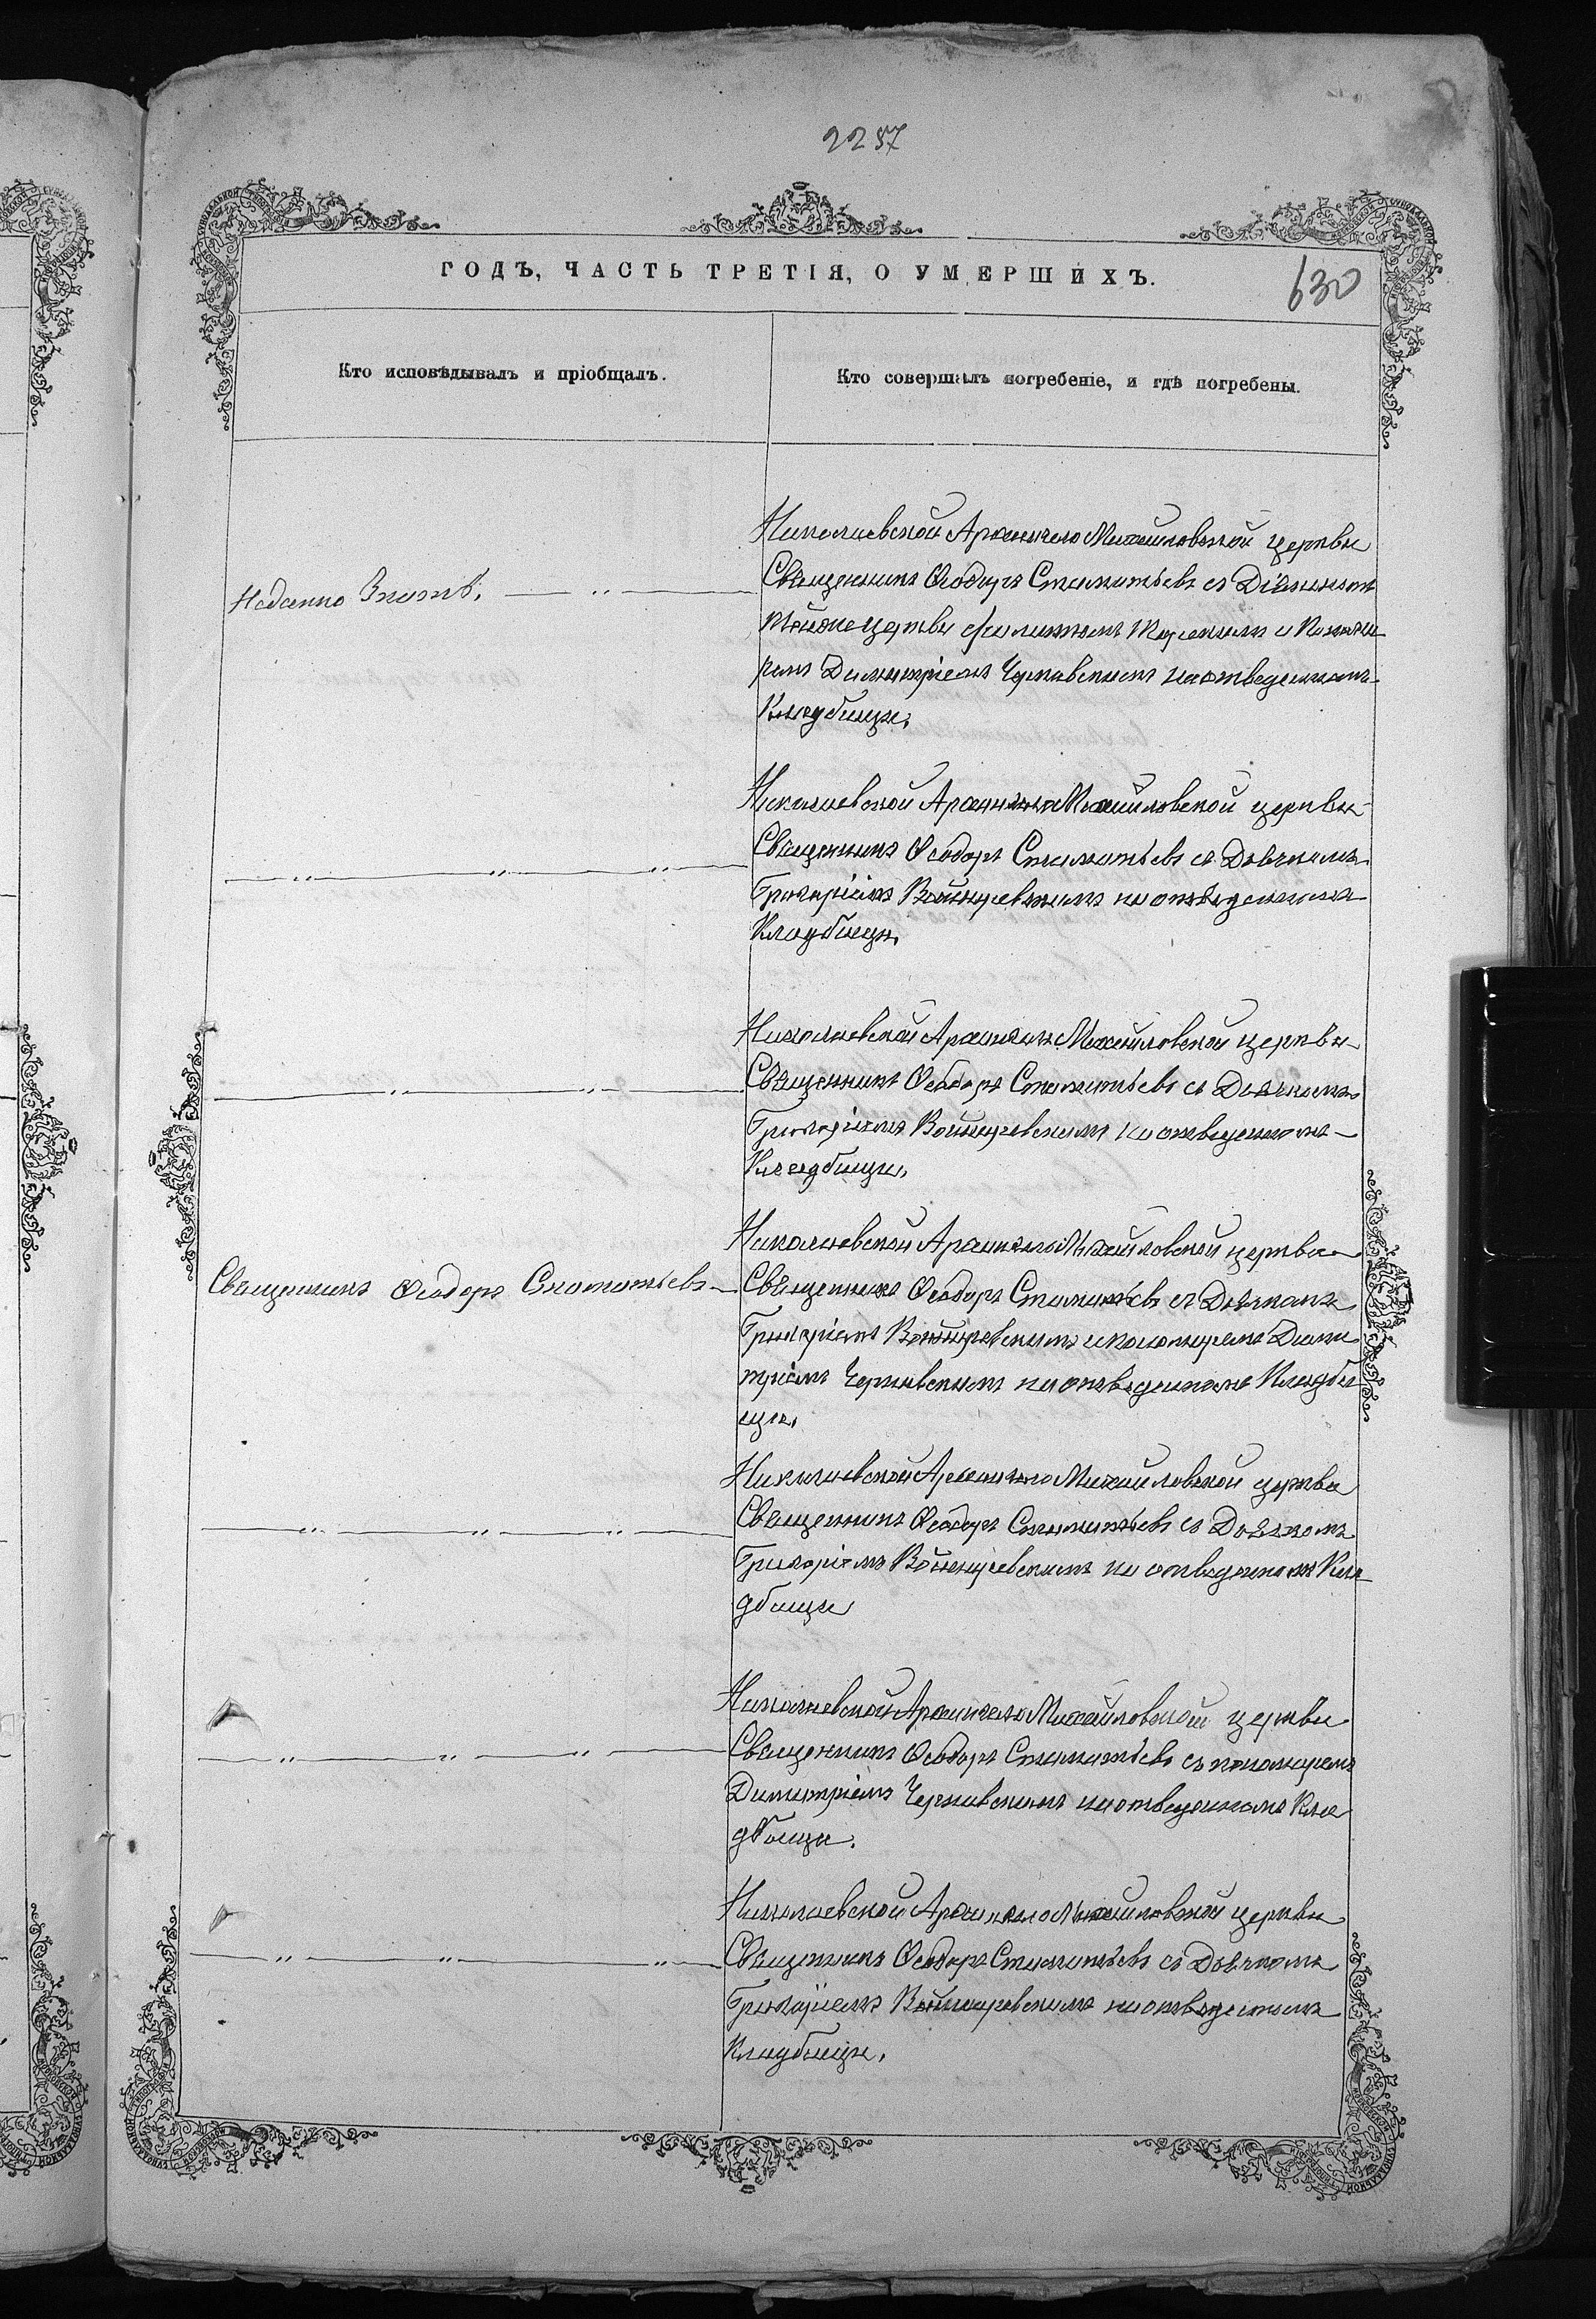 2257
ГОДЪ, ЧАСТЬ ТРЕТІЯ, О УМЕРШИХЪ.
630
Кто исповѣдывалъ и пріобщалъ.
Кто совершалъ погребеніе, и гдѣ погребены.
Николаевской Архангело Михайловской церкви
Священникъ Ѳеодоръ Стаматьевъ съ
церкви и Понама
ремъ Димитріемъ Чернавскимъ на отведенномъ
Кладбищи.
Николаевской Архангело Михайловской церкви
Священникъ Ѳеодоръ Стаматьевъ съ Дьячкомъ
Григоріемъ Войнаревскимъ на отведенномъ
Кладбищи.
Николаевской Архангело Михайловской церкви
Священникъ Ѳеодоръ Стаматьевъ съ Дьячкомъ
Григоріемъ Войнаревскимъ на отведенномъ
Кладбищи.
Священникъ Ѳеодоръ Стаматьевъ
Николаевской Архангело Михайловской церкви
Священникъ Ѳеодоръ Стаматьевъ съ Дьячкомъ
Григоріемъ Войнаревскимъ и пономаремъ Дими
тріемъ Чернавскимъ на отведенномъ Кладби
щи.
Николаевской Архангело Михайловской церкви
Священникъ Ѳеодоръ Стаматьевъ съ Дьячкомъ
Григоріемъ Войнаревскимъ на отведенномъ Кла
дбищи
Николаевской Архангело Михайловской церкви
Священникъ Ѳеодоръ Стаматьевъ съ пономаремъ
Димитріемъ Чернавскимъ на отведенномъ Кла
дбищи.
Николаевской Архангело Михайловской церкви
Священникъ Ѳеодоръ Стаматьевъ съ Дьячкомъ
Григоріемъ Войнаревскимъ на отведенномъ
Кладбищи.